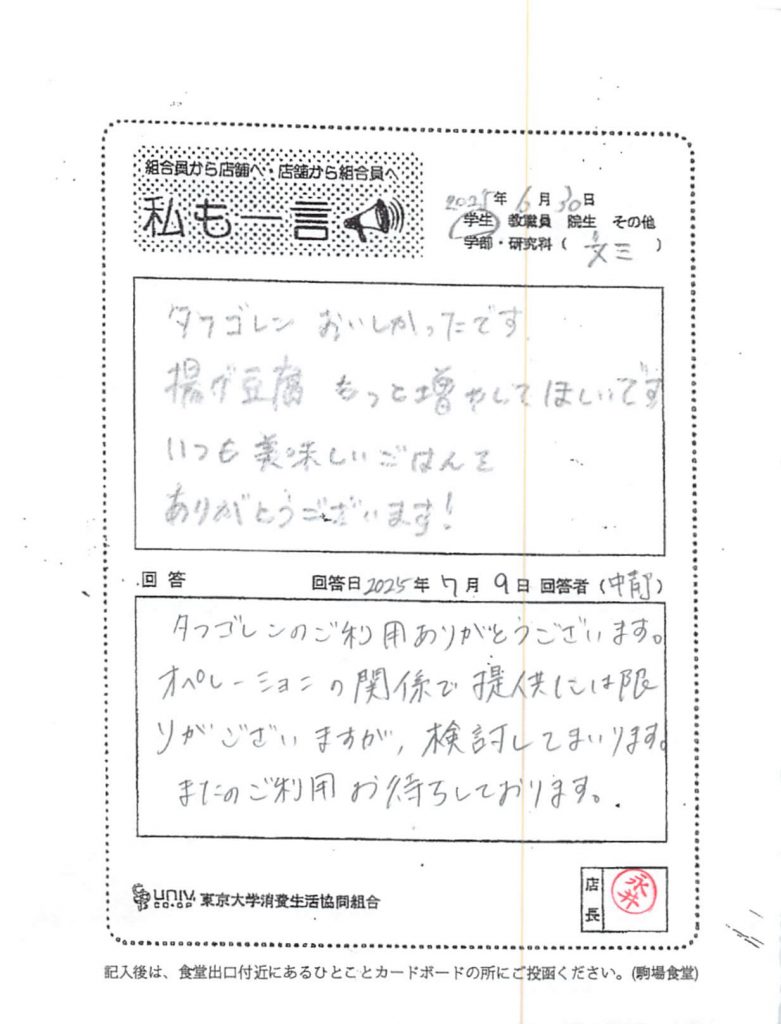 組合員から店舗へ・店舗から組合員へ
私も一言
2025年6月30日
学生 教職員 院生 その他
学部・研究科(文三)
タフゴレン おいしかったです
揚げ豆腐 もっと増やしてほしいです
いつも美味しいごはんを
ありがとうございます!
回答 回答日2025年7月9日 回答者(中靜)
タフゴレンのご利用ありがとうございます。
オペレーションの関係で提供には限
りがございますが、検討してまいります。
またのご利用お待ちしております。
UNIV CO-OP 東京大学消費生活協同組合
店長 永井
記入後は、食堂出口付近にあるひとことカードボードの所にご投函ください。(駒場食堂)